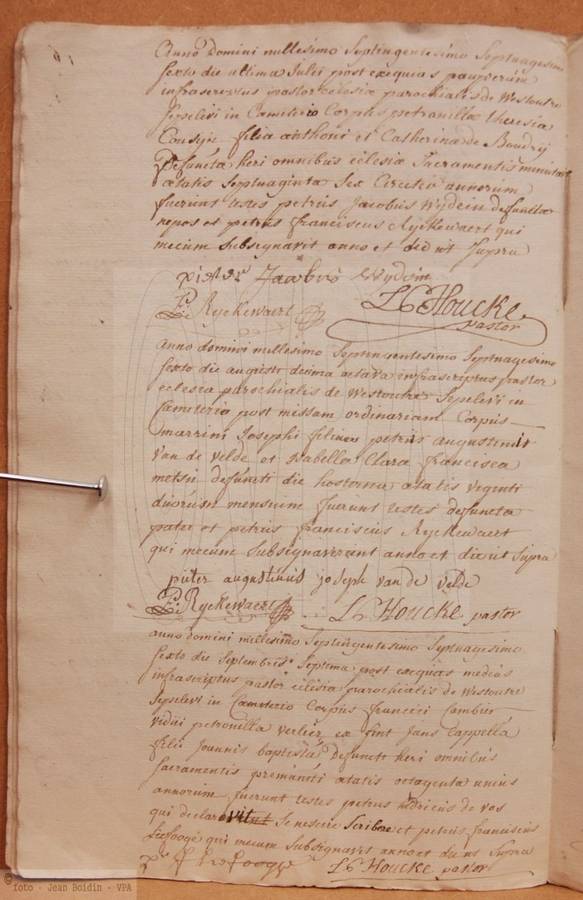 Anno Domini millesimo Septingentesimo Septuagesimo
sexto die ultima Julii post exequias pauperum
infrascriptus pastor ecclesia parochialis de Westoutre
sepelivi in Cameterio Corpus petronilla theresia
filia anthoni et Catherina de
Defuncta heri omnibus eclesia Sacramentis munita
atatis Septuaginta Sex Circiter annorum
fuerunt testes petrus Jacobus Wydein defuncta
nepos et petrus franciscus Ryckewaert qui
mecum Subsignavit anno et die ut Supra
pieter Jacobus Wydein
P: Ryckewaert
L C Houcke
pastor
anno domini millesimo Septingentesimo Septuagesimo
sexto die augusti decima octava infrascriptus pastor
eclesia parochialis de Westoutre Sepelivi in
Cameterio post missam ordinariam Corpus
martini Josephi filius petrus augustinus
van de velde et Isabella Clara francisca
metsu defuncti die hosterna atatis viginti
duorum mensium fuerunt testes defuncta
pater et petrus franciscus Ryckewaert
qui mecum Subsignaverunt anno et die ut Supra
piter augustinus joseph van de velde
P: Ryckewaert L C Houcke pastor
anno domini millesimo Septingentesimo Septuagesimo
sexto die Septembris Septima post exequias medias
infrascriptus pastor eclesia parochialis de Westoutre
Sepelivi in Cameterio Corpus francisci Cambier
vidui petronilla verlier ex sint Jans Cappella
filii Joannis baptista Defuncti heri omnibus
Sacramentis premuniti atatis octogenta unius
annorum fuerunt testes petrus de vos
qui declaravit Se nescire Scribere et petrus franciscus
qui mecum Subsignavit anno et die ut Supra
L C Houcke pastor
©foto - Jean Boidin - VPA